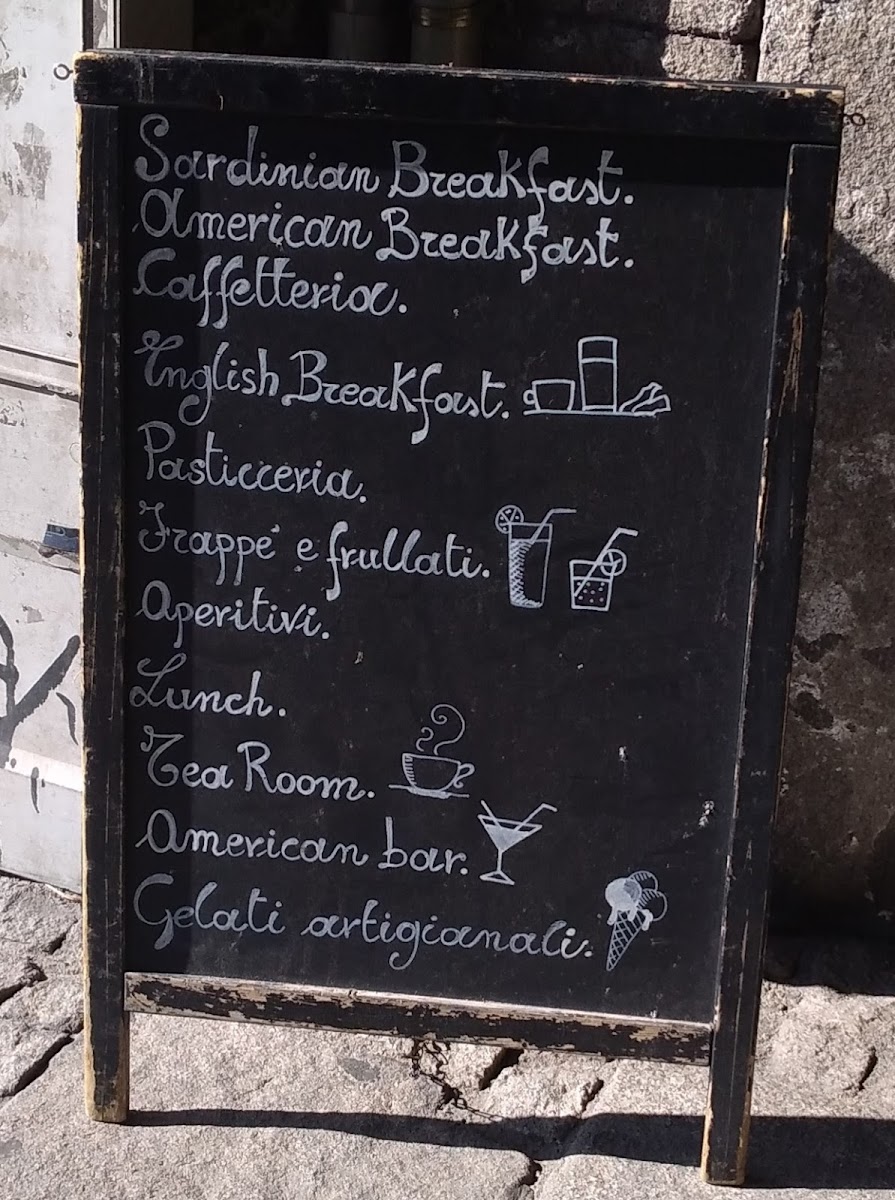 Sardinian Breakfast.
American Breakfast.
Caffetteria.
English Breakfast.
Pasticceria.
Frappe' e frullati.
Aperitivi.
Lunch.
Tea Room.
American bar.
Gelati artigianali.